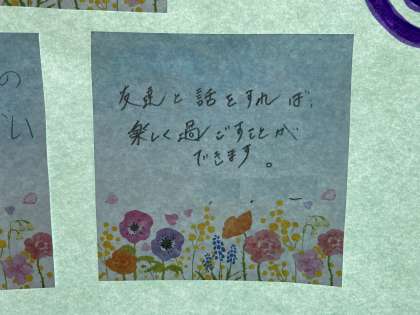 の
い
友達と話をすれば、
楽しく過ごすことが
できます。